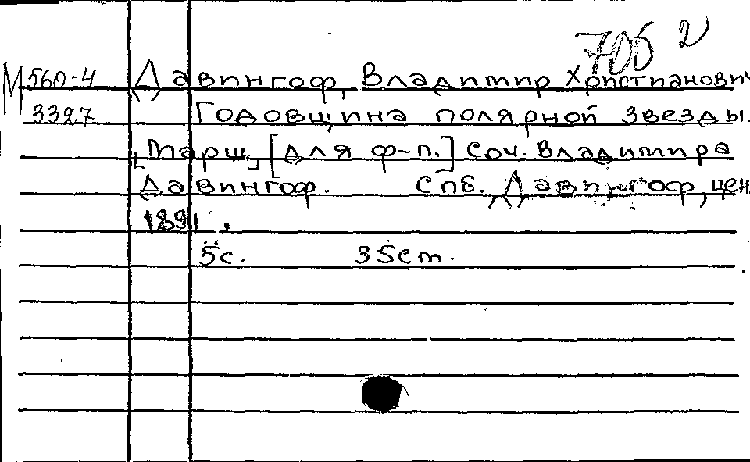 705 2
М 560-4 Давингоф, Владимир Христианович
3397 Годовщина полярной звезды.
[Марш] [для ф-п.] Соч. Владимира
Давингоф. Спб., Давингоф, ценз.
1891.
5с. 35cm.